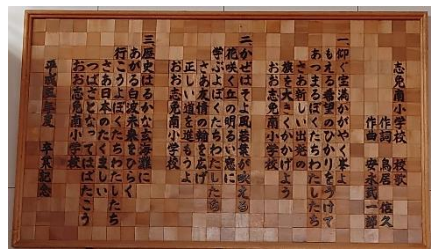 志免南小学校 校歌
作詞 鳥居 信久
作曲 安永武一郎
一 仰ぐ宝満かがやく峯よ
もえる希望のひかりをうけて
あつまるぼくたちわたしたち
さあ新しい出発の
旗を大きくかかげよう
おお志免南小学校
二 かどはそよ風若葉が映える
花咲く丘の明るい窓に
学ぶよぼくたちわたしたち
さあ友情の輪を広げ
正しい道を進もうよ
おお志免南小学校
三 歴史はるかな玄海灘に
あがる白波未来をひらく
行こうよぼくたちわたしたち
さあ日本のたくましい
つばさとなってはばたこう
おお志免南小学校
卒業記念